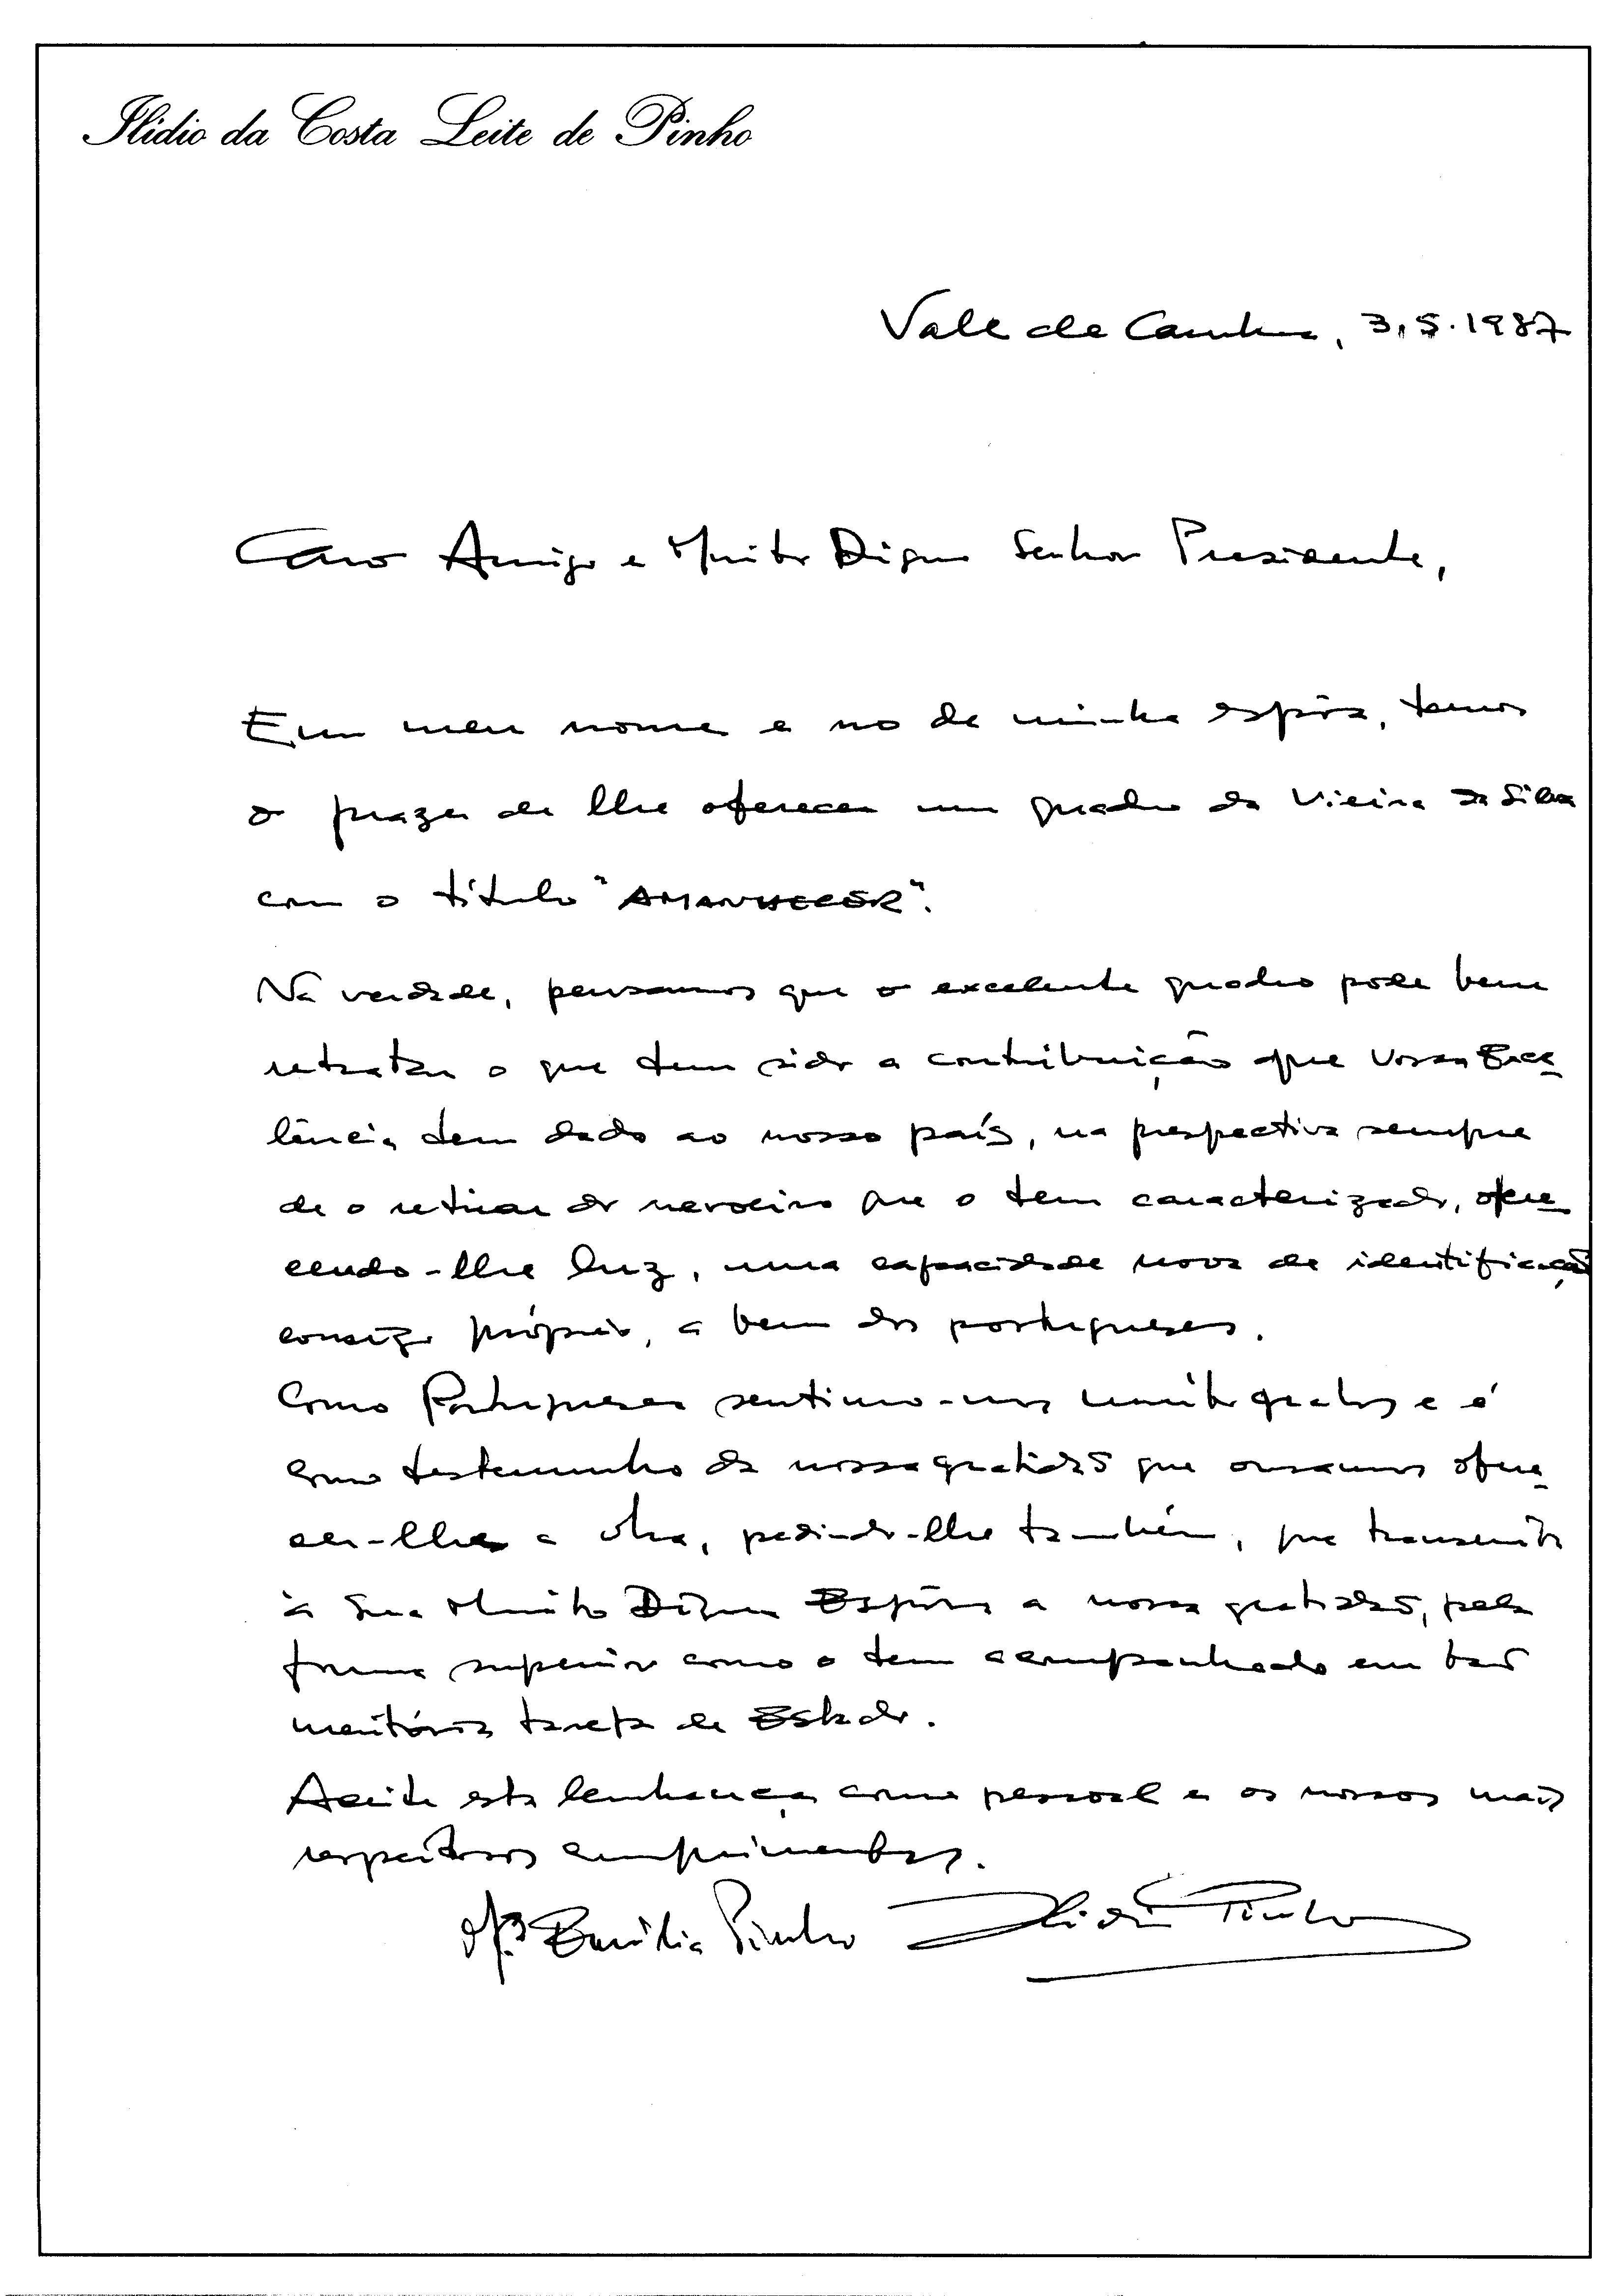 Ilídio da Costa Leite de Pinho
Vale de Cambra, 3.5.1987
Caro Amigo e Muito Digno Senhor Presidente,
Em meu nome e no de minha espôsa, temos
o prazer de lhe oferecer um quadro da Vieira da Silva
com o título "AMANHECER".
Na verdade, pensamos que o excelente quadro pode bem
retratar o que tem sido a contribuição que Vossa Exce-
lência tem dado ao nosso país, na prespectiva sempre
de o retirar do nevoeiro que o tem caracterizado, ofere-
cendo-lhe luz, uma capacidade nova de identificação
consigo próprio, a bem dos portugueses.
Como Portugueses sentimo-nos muito gratos e é
como testemunho da nossa gratidão que ousamos ofere-
cer-lhe a obra, pedindo-lhe também, que transmita
à Sua Muito Digna Espôsa a nossa gratidão, pela
forma superior como o tem acompanhado em tão
meritória tarefa de Estado.
Aceite esta lembrança como pessoal e os nossos mais
respeitosos cumprimentos.
Mª Emília Pinho Ilídio Pinho